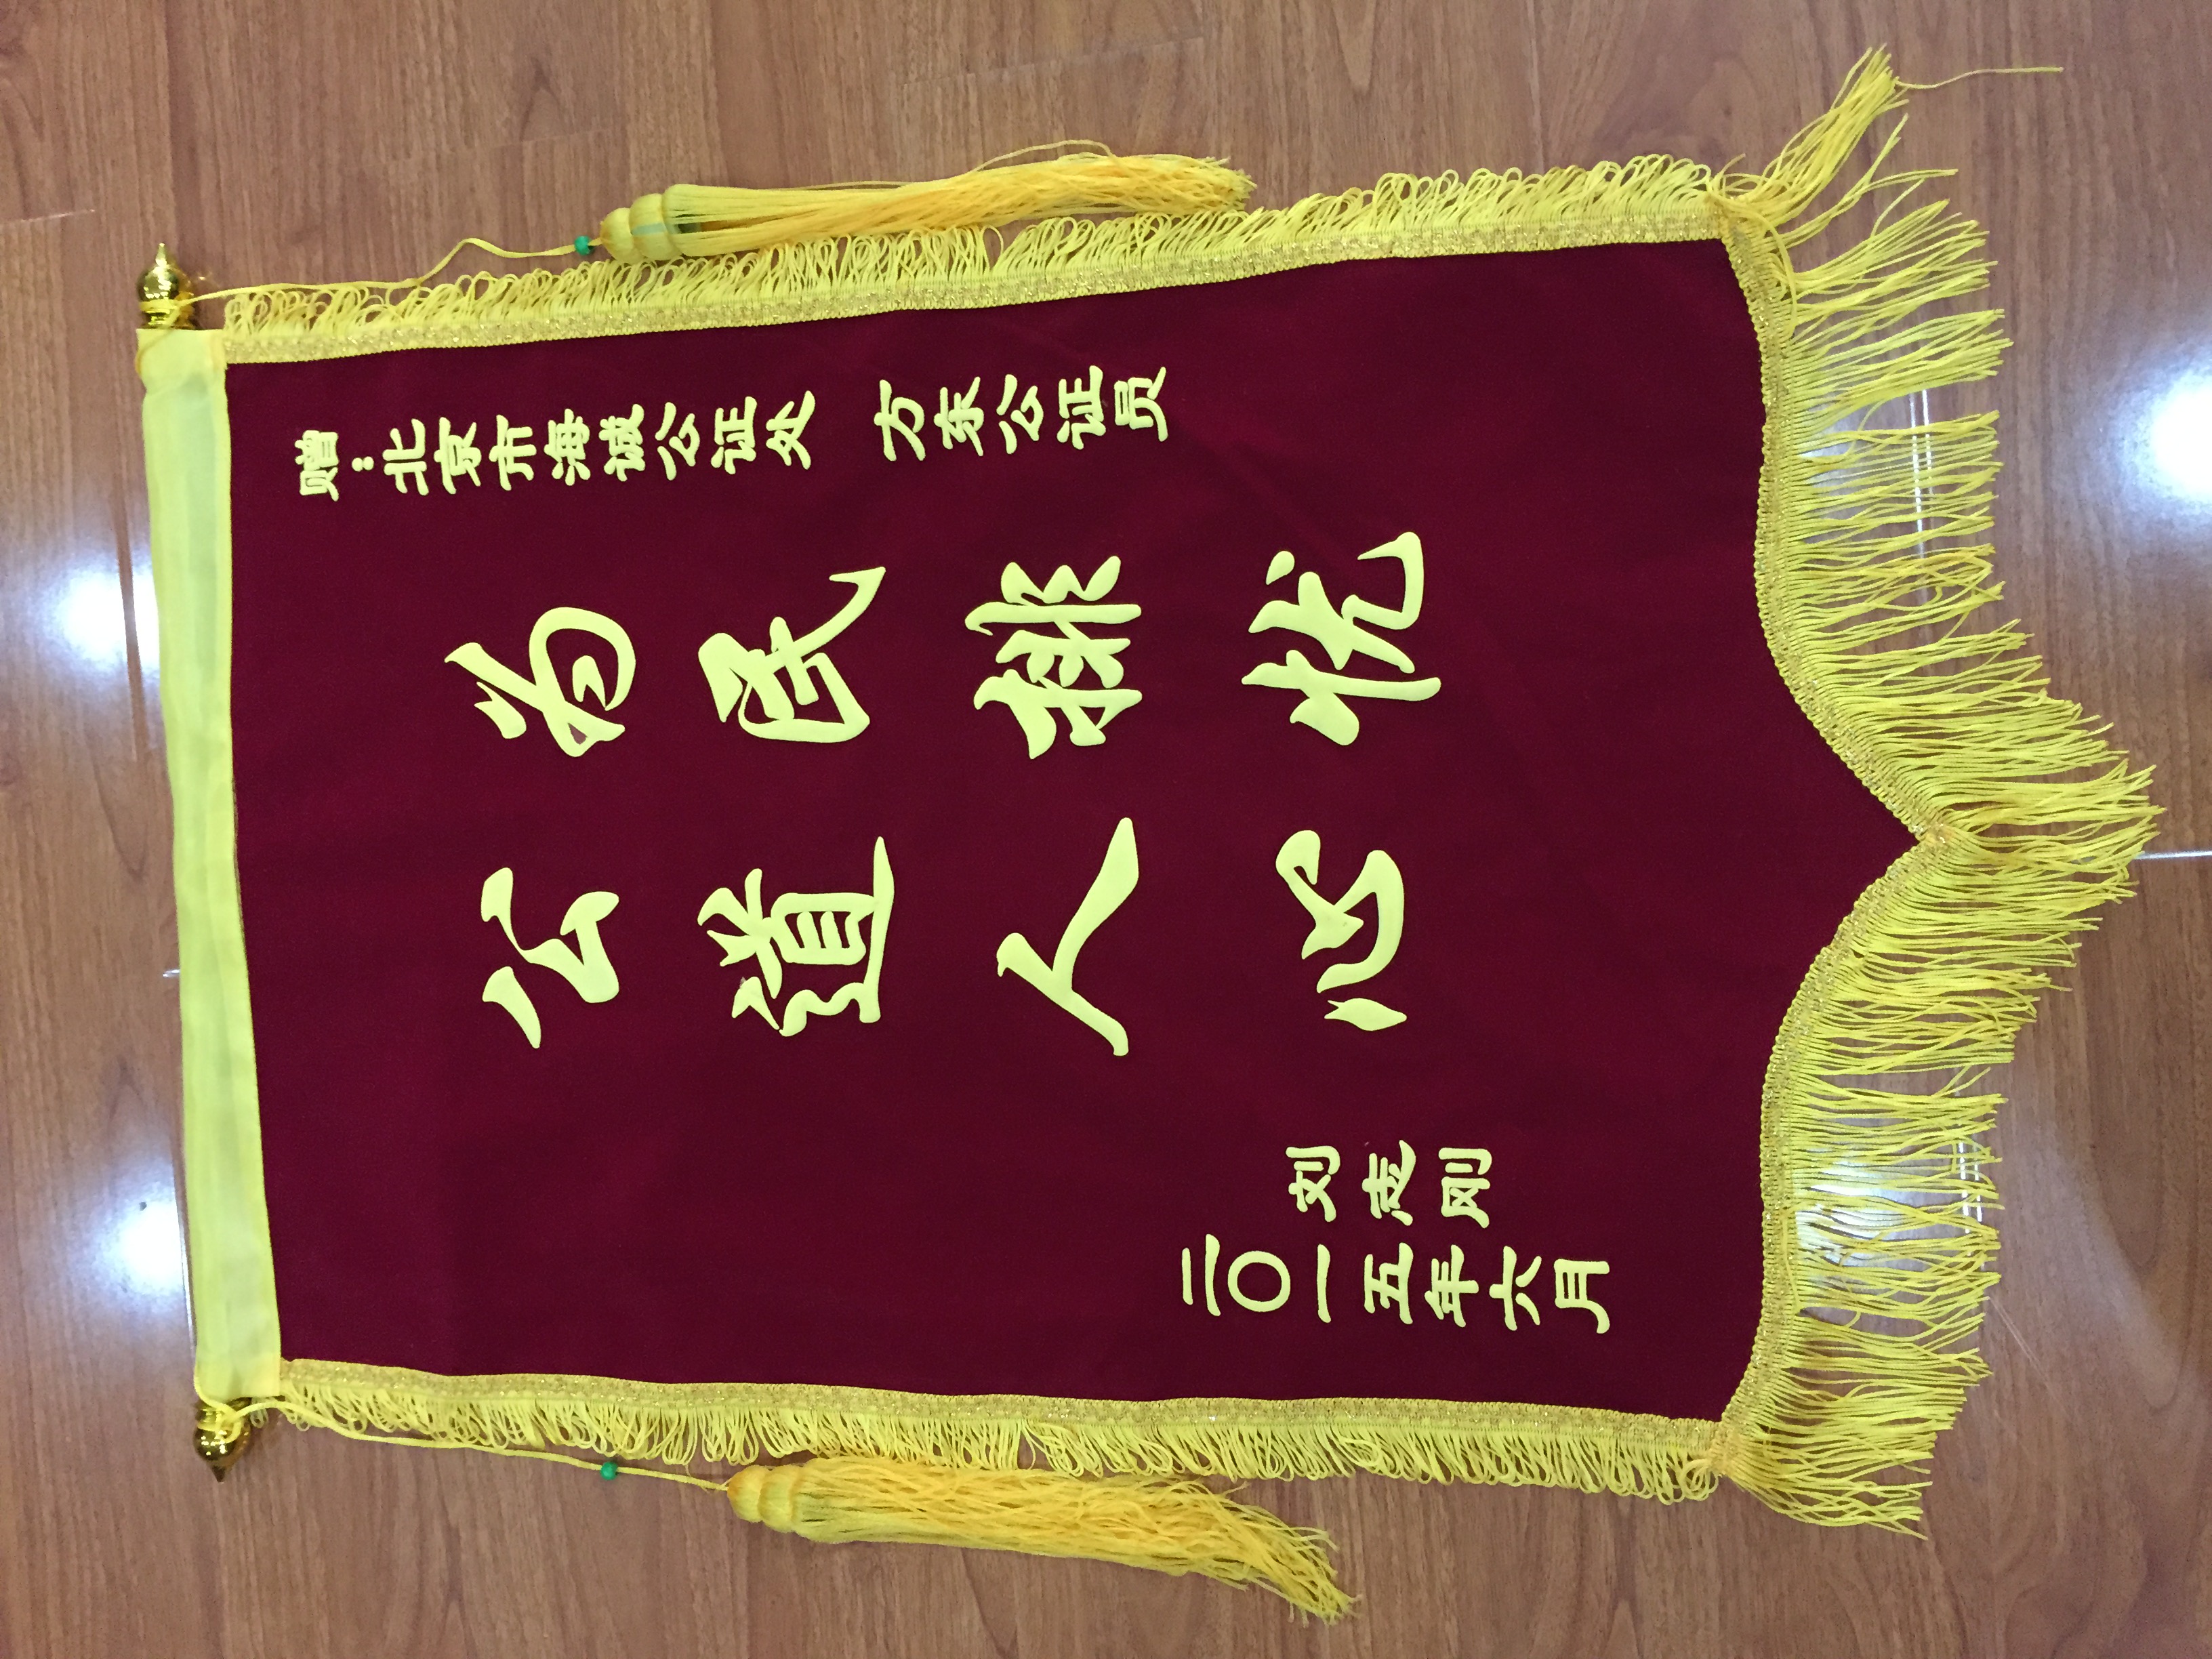 赠：北京市海诚公证处 方东公证员
为民排忧
公道人心
刘志刚
二〇一五年六月